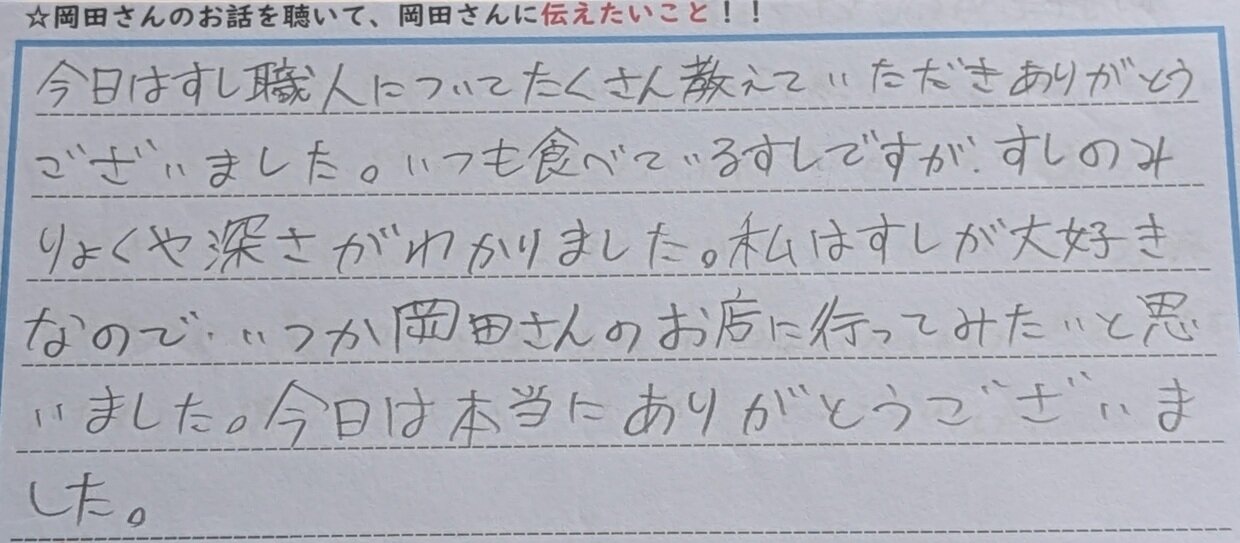 ☆岡田さんのお話を聴いて、岡田さんに伝えたいこと！！
今日はすし職人についてたくさん教えていただきありがとう
ございました。いつも食べているすしですが、すしのみ
りょくや深さがわかりました。私はすしが大好き
なので、いつか岡田さんのお店に行ってみたいと思
いました。今日は本当にありがとうございま
した。